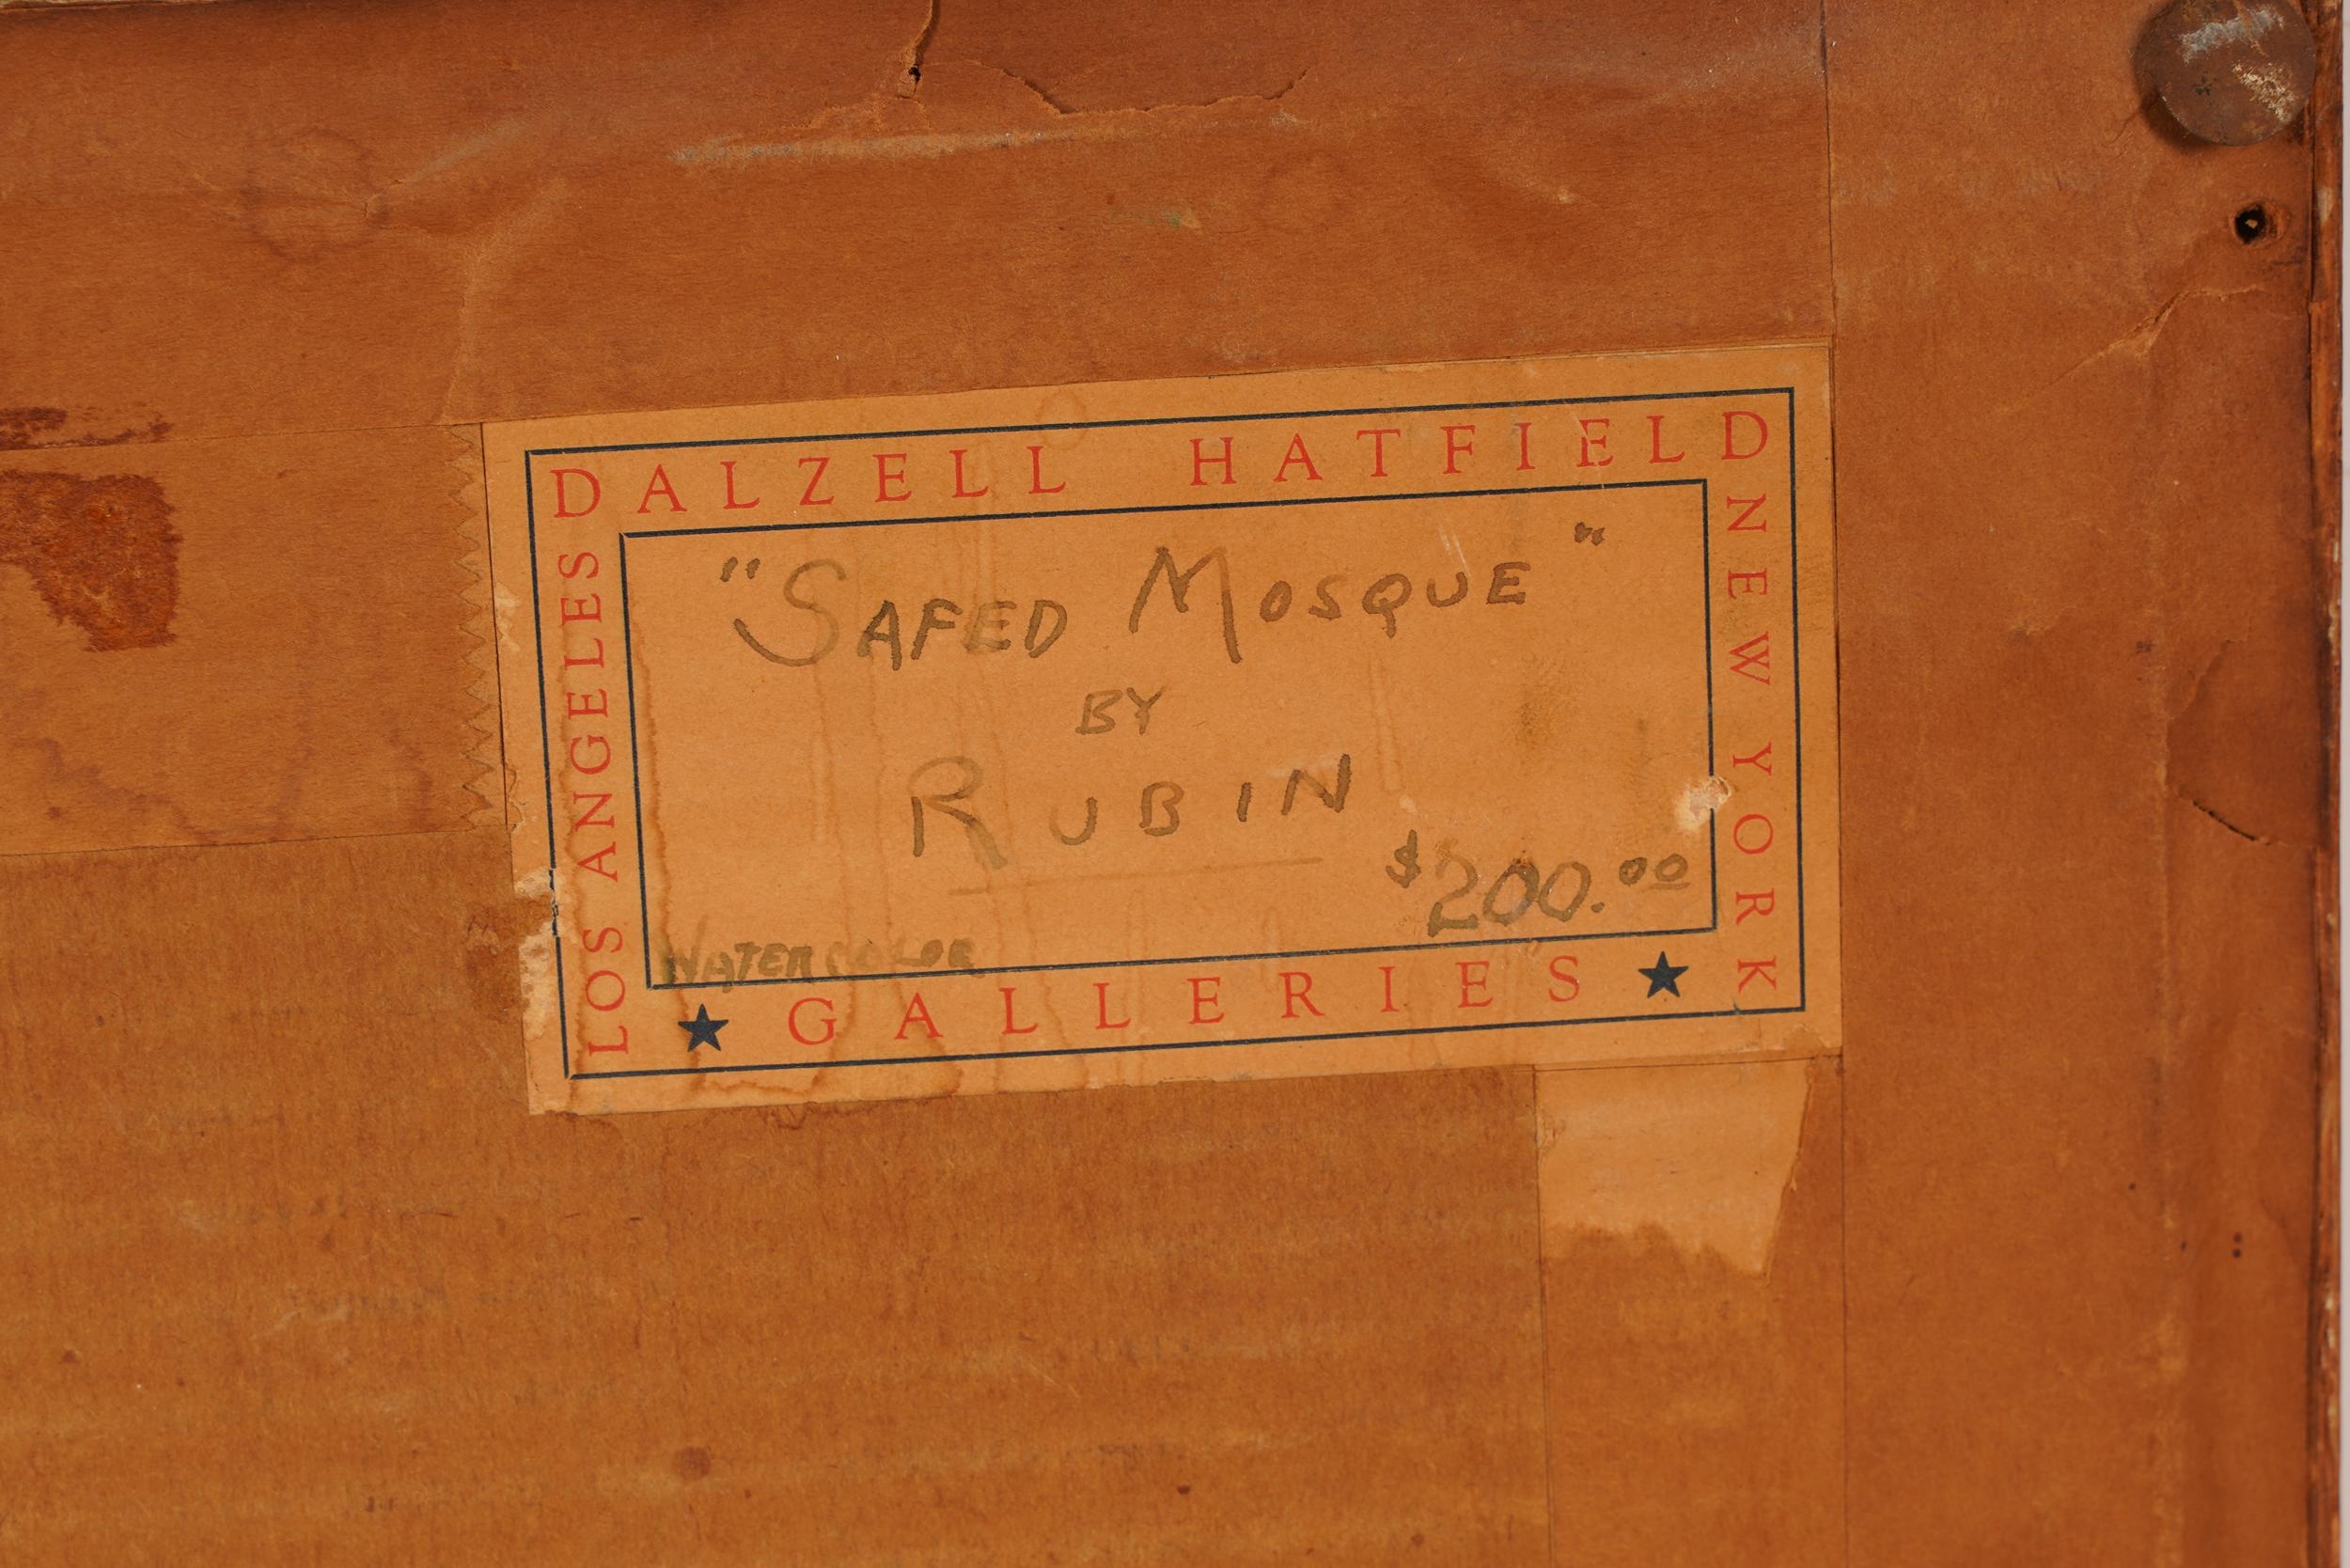 DALZELL HATFIELD
LOS ANGELES
NEW YORK
"SAFED MOSQUE"
BY
RUBIN
$200.00
WATERCOLOR
★ GALLERIES ★